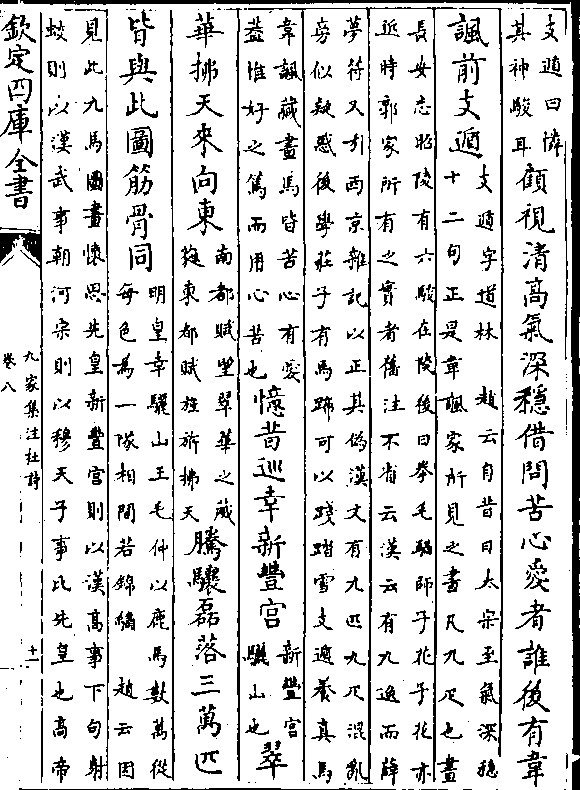 支遁曰憐
其神駿耳
顧視清高氣深穩借問苦心愛者誰後有韋
諷前支遁
支遁字道林　趙云自昔日太宗至氣深穩
十二句正是韋諷家所見之畫凡九疋也畫
長安志昭陵有六駿在陵後曰拳毛騧師子花子花亦
近時郭家所有之實者舊注不省云漢云有九逸而薛
夢符又引西京雜記以正其偽漢文有九匹九疋混亂
旁似疑惑後學莊子有馬蹄可以踐踏雪支遁養真馬
韋諷藏畫馬皆苦心有愛
葢惟好之篤而用心苦也
憶昔巡幸新豐宮
新豐宮
驪山也
翠
華拂天來向東
南都賦望翠華之葳
蕤東都賦旌旂拂天
騰驤磊落三萬匹
皆與此圖筋骨同
明皇幸驪山王毛仲以廐馬數萬從
每色為一隊相間若錦繡　趙云因
見此九馬圖畫懷思先皇新豐宮則以漢高事下句射
蛟則以漢武事朝河宗則以穆天子事比先皇也高帝
欽定四庫全書
九家集注杜詩
卷八
十一